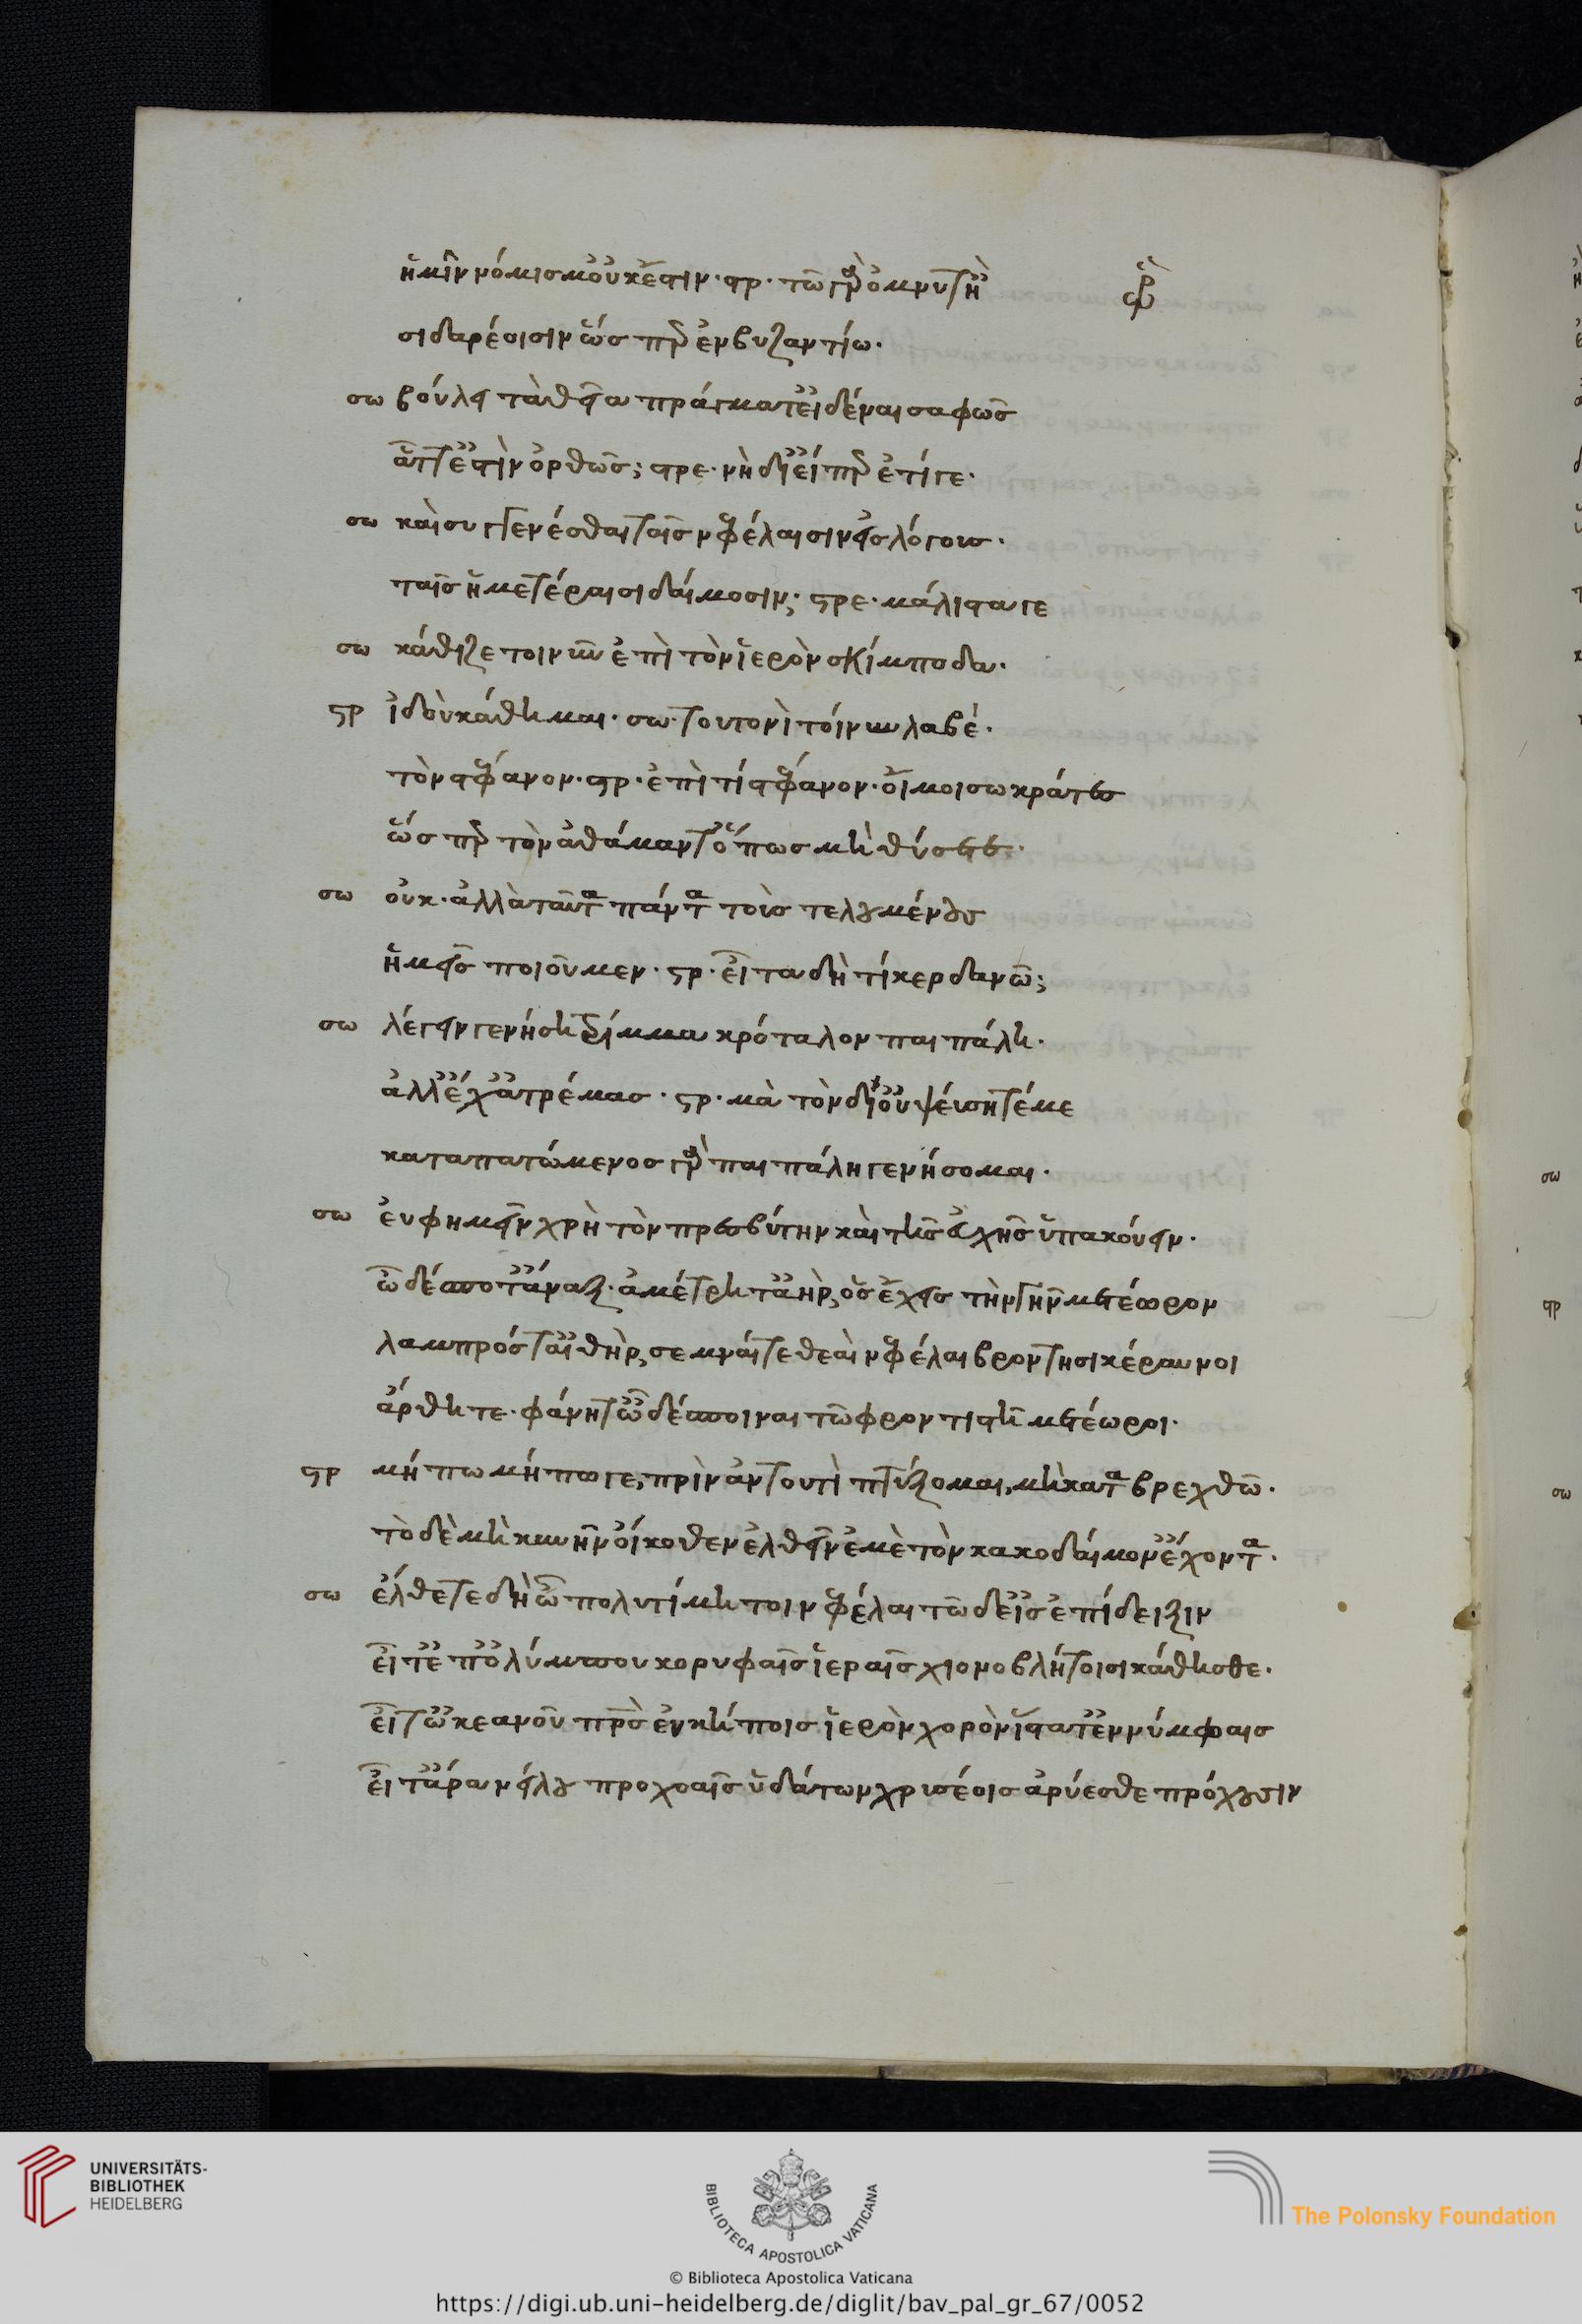 ἡμῖν νόμισμ' οὐκ ἔστιν. στρ. τῶ γὰρ ὄμνυτ' ἢ
σιδαρέοισιν ὥσπερ ἐν βυζαντίω.
σω βούλει τὰ θεῖα πράγματ' εἰδέναι σαφῶς
ἅττ' ἐστὶν ὀρθῶς; στρε. νὴ δί' εἴπερ ἔτι γε.
σω καὶ συγγενέσθαι ταῖς νεφέλαισιν εἰς λόγους.
ταῖς ἡμετέραισι δαίμοσιν; στρε. μάλιστα γε
σω κάθιζε τοίνυν ἐπὶ τὸν ἱερὸν σκίμποδα.
στρ ἰδοὺ κάθημαι. σω. τουτονὶ τοίνυν λαβέ.
τὸν στέφανον. στρ. ἐπὶ τί στέφανον. οἴμοι σώκρατες
ὥσπερ τὸν ἀθάμανθ' ὅπως μὴ θύσετε.
σω οὐκ. ἀλλὰ ταῦτα πάντα τοὺς τελουμένους
ἡμεῖς ποιοῦμεν. στρ. εἶτα δὴ τί κερδανῶ;
σω λέγειν γενήση τρίμμα κρόταλον παιπάλη.
ἀλλ' ἔχ' ἀτρέμας. στρ. μὰ τὸν δί' οὐ ψεύση τέ με
καταπατώμενος γὰρ παιπάλη γενήσομαι.
σω εὐφημεῖν χρὴ τὸν πρεσβύτην καὶ τῆς εὐχῆς ὑπακούειν.
ὦ δέσποτ' ἄναξ. ἀμέτρητ' ἀὴρ, ὃς ἔχεις τὴν γῆν μετέωρον
λαμπρός τ' αἰθὴρ, σεμναί τε θεαὶ νεφέλαι βροντησικέραυνοι
ἄρθητε. φάνητ' ὦ δέσποιναι τῶ φροντιστῆ μετέωροι.
στρ μήπω μήπω γε, πρὶν ἂν τουτὶ πτύξομαι, μὴ καταβρεχθῶ.
τὸ δὲ μὴ κυνῆν οἴκοθεν ἐλθεῖν ἐμὲ τὸν κακοδαίμον' ἔχοντα.
σω ἔλθετε δὴ ὦ πολυτίμητοι νεφέλαι τῶδ' εἰς ἐπίδειξιν
εἶτ' ἐπ' ὀλύμπου κορυφαῖς ἱεραῖς χιονοβλήτοισι κάθησθε.
εἶτ' ὠκεανοῦ πρς ἐν κήποις ἱερὸν χορὸν ἵστατ' ἐν νύμφαις
εἶτ' ἄρα νείλου προχοαῖς ὑδάτων χρυσέοις ἀρύεσθε πρόχουσιν
UNIVERSITÄTS-
BIBLIOTHEK
HEIDELBERG
BIBLIOTECA APOSTOLICA VATICANA
© Biblioteca Apostolica Vaticana
The Polonsky Foundation
https://digi.ub.uni-heidelberg.de/diglit/bav_pal_gr_67/0052